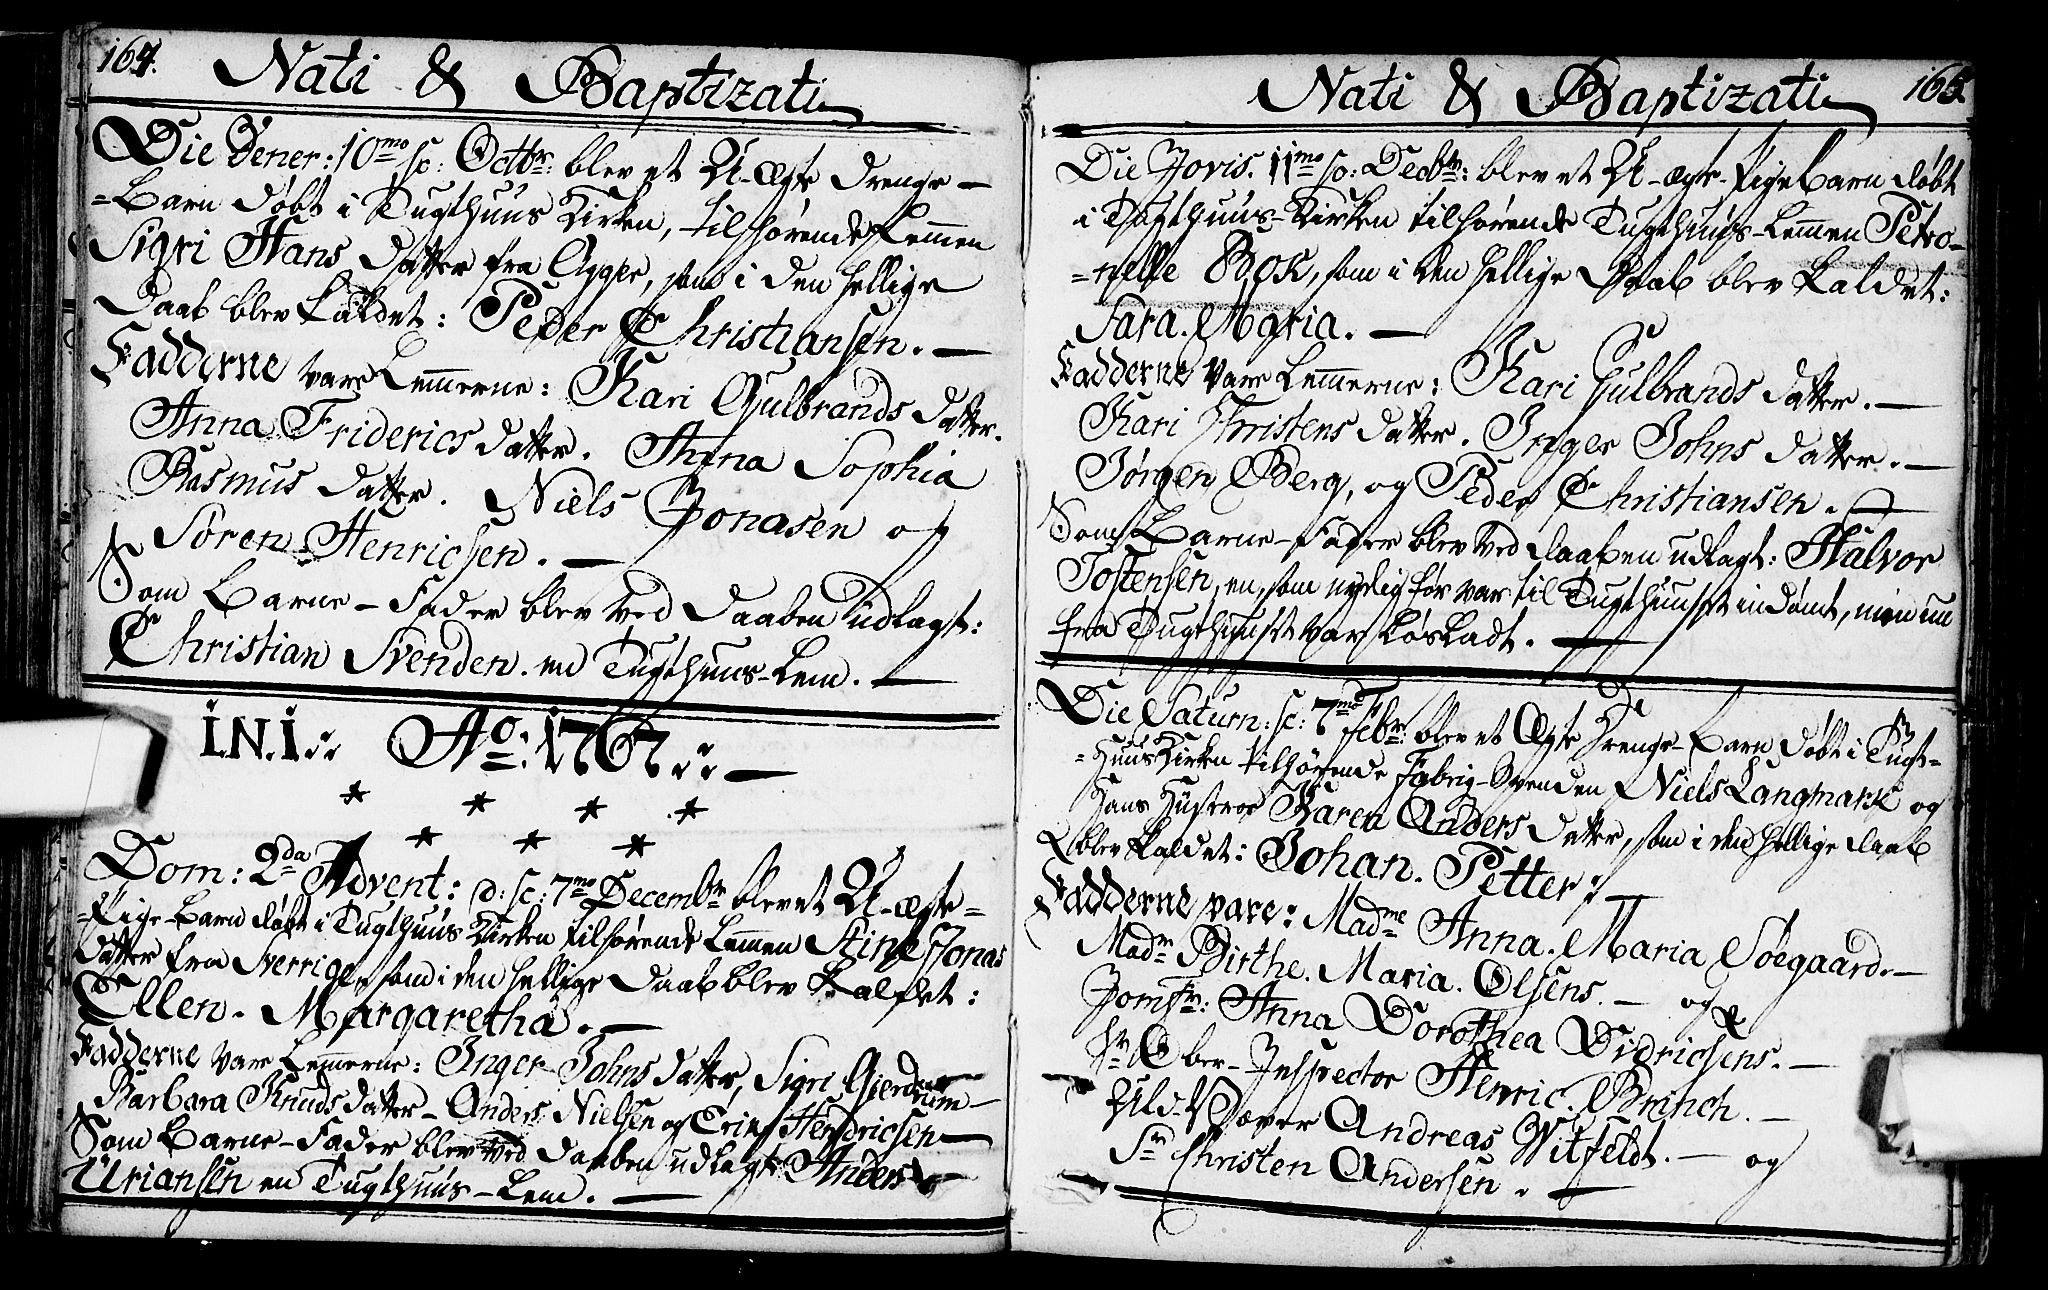 164.
Nati & Baptizati
Die Vener: 10mo sc: Octbr: blev et U-ægte drenge-
-Barn døbt i Tugthuus Kirken, tilhørende Lemmen
Sigri Hans datter fra Agger, som i den hellige
Daab blev kaldet: Peder Christiansen. —
Fadderne vare Lemmerne: Kari Gulbrands datter.
Anna Friderics datter. Anna Sophia
Rasmus datter. Niels Jonasen og
Søren Henricsen. —
Som Barne-Fader blev ved Daaben udlagt:
Christian Svendsen en Tugthuus-Lem. —
I.N.I.:: Ao: 1767.:: —
* * * *
* * *
Dom: 2da Advent: d: sc: 7mo Decembr blev et U-ægte-
-Pige-Barn døbt i Tugthuus Kirken tilhørende Lemmen Stine Jonas
datter fra Sverrige, som i den hellige Daab blev kaldet:
Ellen. Margaretha. —
Fadderne vare Lemmerne: Inger Johns datter, Sigri Gjerdrum
Barbara Knuds datter - Anders Nielsen og Erik Hendricsen —
Som Barne-Fader blev ved Daaben udlagt Anders
Uriansen en Tugthuus-Lem. —
165.
Nati & Baptizati
Die Jovis. 11mo sc: Decbr: blev et U-ægte-Pigebarn døbt
i Tugthuus-Kirken tilhørende Tugthuus-Lemmen Petro-
-nelle Bok, som i den hellige Daab blev kaldet:
Sara. Maria. —
Fadderne vare Lemmerne: Kari Gulbrands datter. —
Kari Christens datter. Inger Johns datter. —
Jørgen Berg, og Peder Christiansen. —
Som Barne-Fader blev ved Daaben udlagt: Halvor
Tostensen, en, som nylig før var til Tugthuuset indømt, men nu
fra Tugthuuset var Løsladt. —
Die Saturn: sc: 7mo Febr: blev et Ægte Drenge-Barn døbt i Tugt-
-huus Kirken tilhørende Fabrig-Svenden Niels Langmark og
Hans Hustroe Karen Anders datter, som i den hellige daab
blev kaldet: Johan. Petter: —
Fadderne vare: Madme Anna. Maria Søegaard. —
Madm Birthe. Maria. Olsens. — og
Jomfr: Anna Dorothea Didricsens. —
Sr Ober-Inspector Henric. Brinch. —
Uld-Væver Andreas Witfeldt. — og
Sr Christen Andersen. —